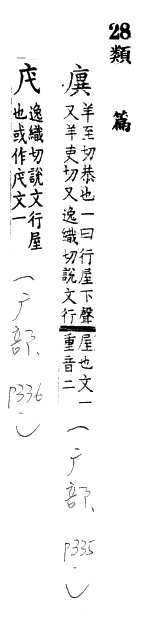 28類篇
廙
羊至切恭也一曰行屋下聲
又羊吏切又逸織切說文行
屋也文一
重音二
(广部 p335.)
逸織切說文行屋
也或作文一
(广部 p336.)